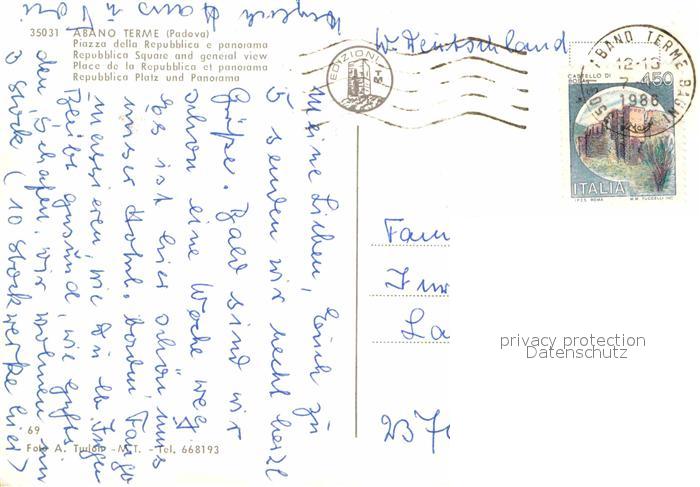 35031 ABANO TERME (Padova)
Piazza della Repubblica e panorama
Repubblica Square and general view
Place de la Repubblica et panorama
Repubblica Platz und Panorama
EDIZIONI
MT
W. Deutschland
ABANO TERME BAGNI
12-13
7
1986
CASTELLO DI
450
ITALIA
I.P.Z.S. ROMA
M.M. TUCCELLI INC.
Meine Lieben, Euch zu
senden wir recht herzl
Grüße. Bald sind wir
schon eine Woche weg
Es ist hier schön uns
unser Hotel, baden Fango
massieren, wie
Bleibt gesund, wie gehts
den Schafen, wir wohnen im
Stock (10 Stockwerke hier)
Herzlich
Hans
Fam
La
privacy protection
Datenschutz
69
Foto A. Turlon - M.T. - Tel. 668193